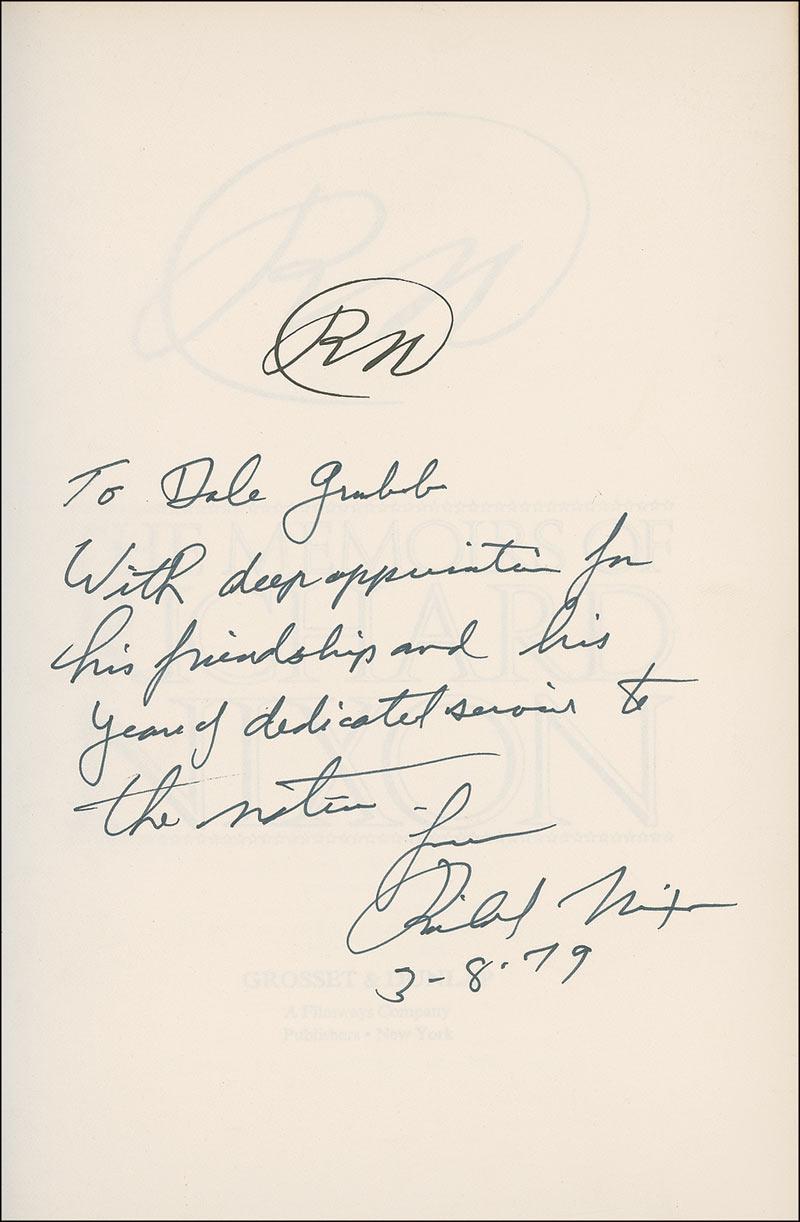 RN
To Dale Grubb
With deep appreciation for
his friendship and his
years of dedicated service to
the nation
from
Richard Nixon
3-8-79
THE MEMOIRS OF
RICHARD
NIXON
GROSSET & DUNLAP
A Filmways Company
Publishers • New York